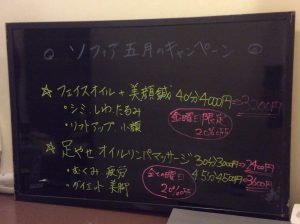 ○ ソフィア 五月のキャンペーン ○
☆ フェイスオイル + 美顔鍼 40分4000円⇒3200円
・シミ、しわ、たるみ
・リフトアップ、小顔
金曜日限定
20%off
☆ 足やせ オイルリンパマッサージ 30分3000円⇒2400円
・むくみ 疲労
45分4500円⇒3600円
・ダイエット 美脚
20%off